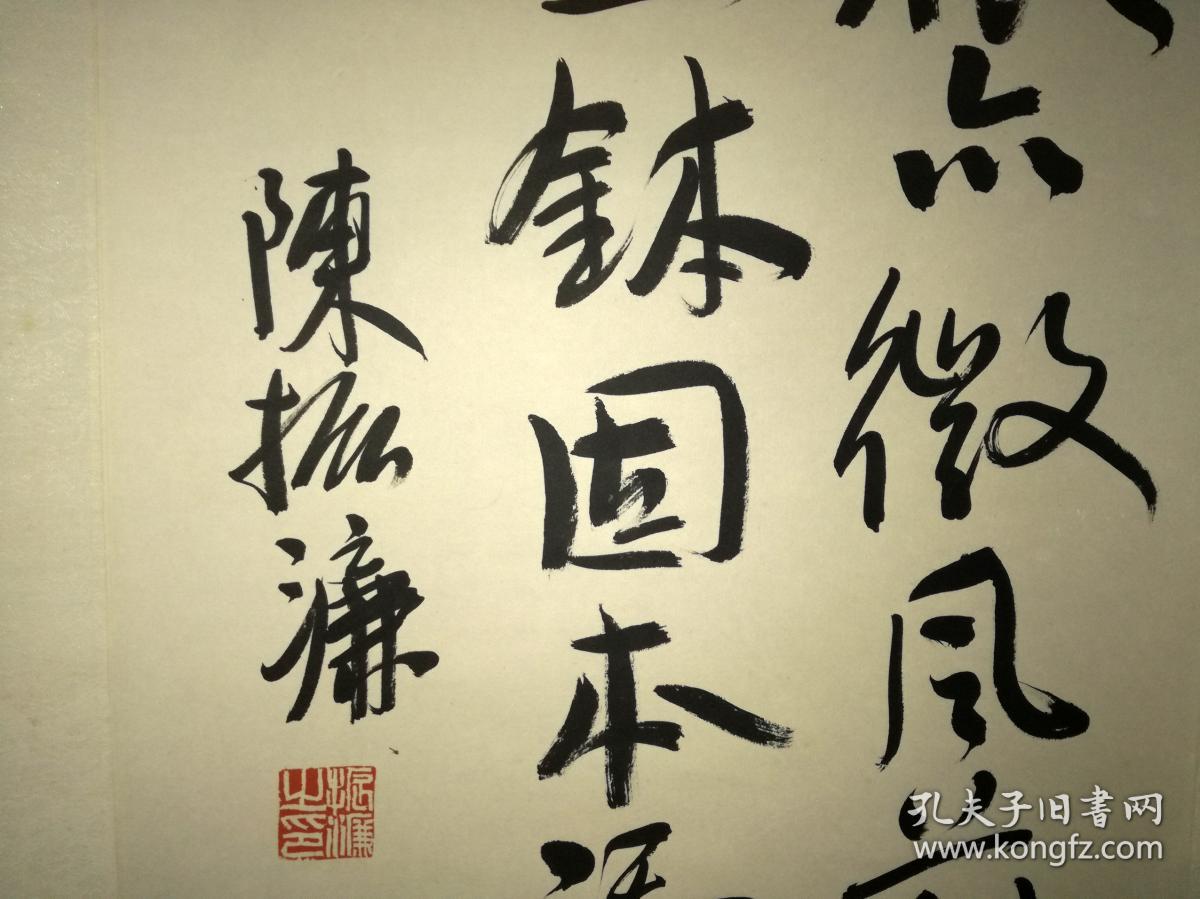 点微风
钵固本
陳振濂
振濂之印
孔夫子旧书网
www.kongfz.com